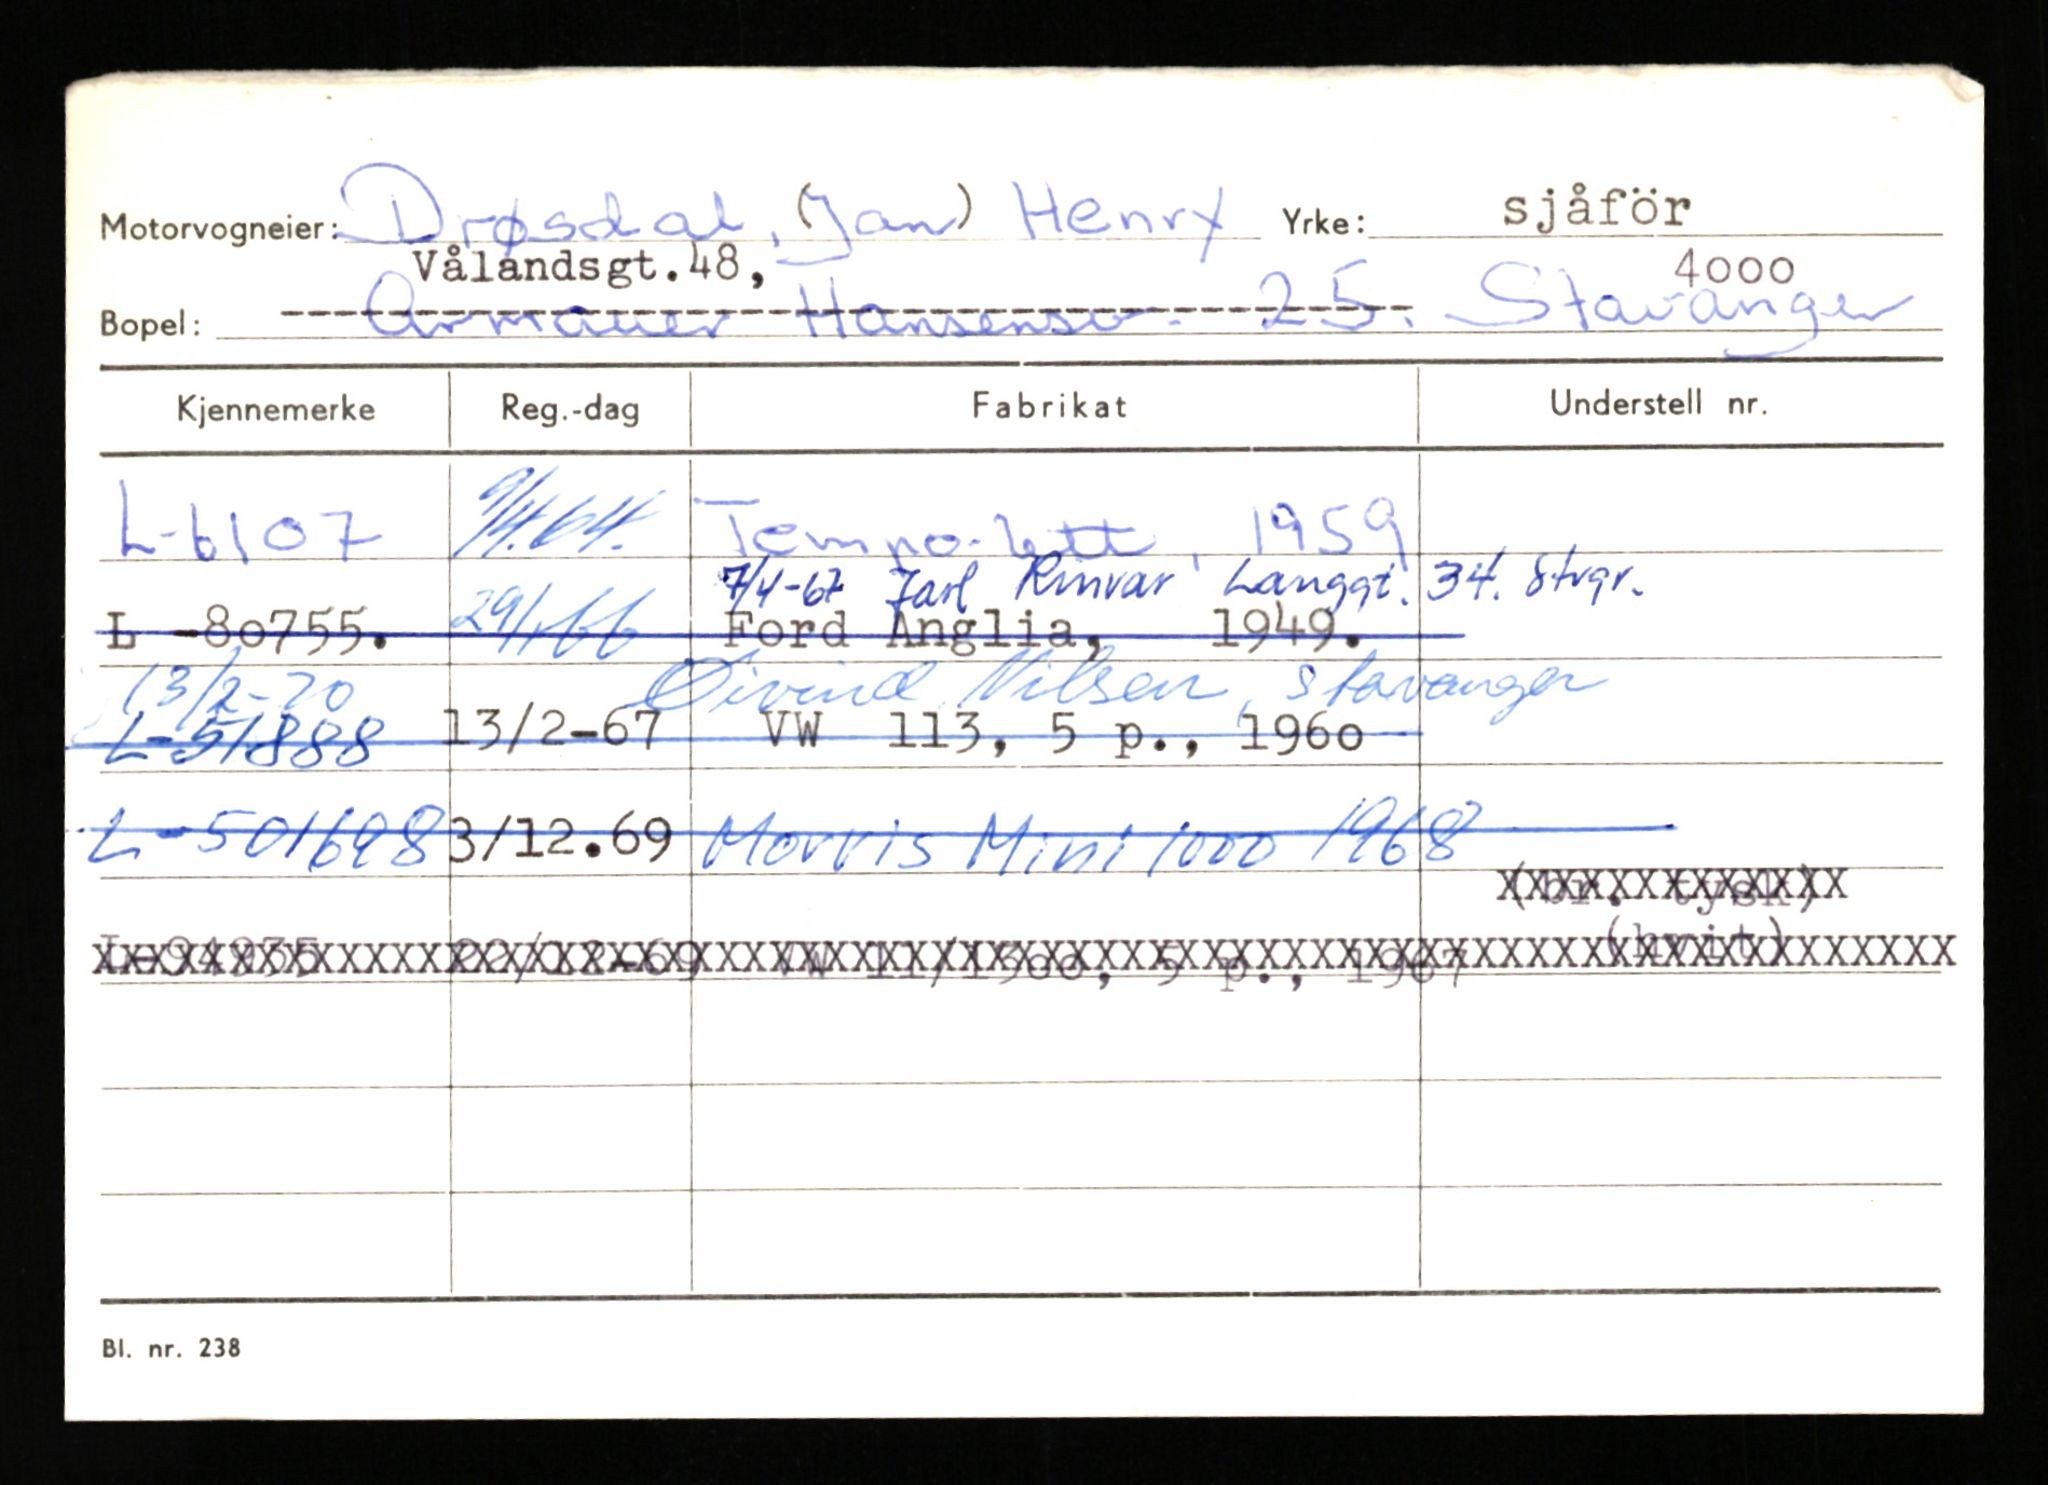 Motorvogneier: Drøsdal, (Jan) Henry Yrke: sjåför
Vålandsgt.48, 4000
Bopel: Armauer Hansensv. 25. Stavanger
Kjennemerke Reg.-dag Fabrikat Understell nr.
L-6107 9/4.64. Tempo-lett, 1959
7/4-67 Jarl Rinvar Langgt. 34. Stvgr.
L -80755. 29/1.66 Ford Anglia, 1949.
13/2-70 Øivind Nilsen, Stavanger
L-51888 13/2-67 VW 113, 5 p., 1960
L-501698 3/12.69 Morris Mini 1000 1968
(br. tysk)
(hvit)
L-94935 22/12-69 VW 11/1300, 5 p., 1967
Bl. nr. 238